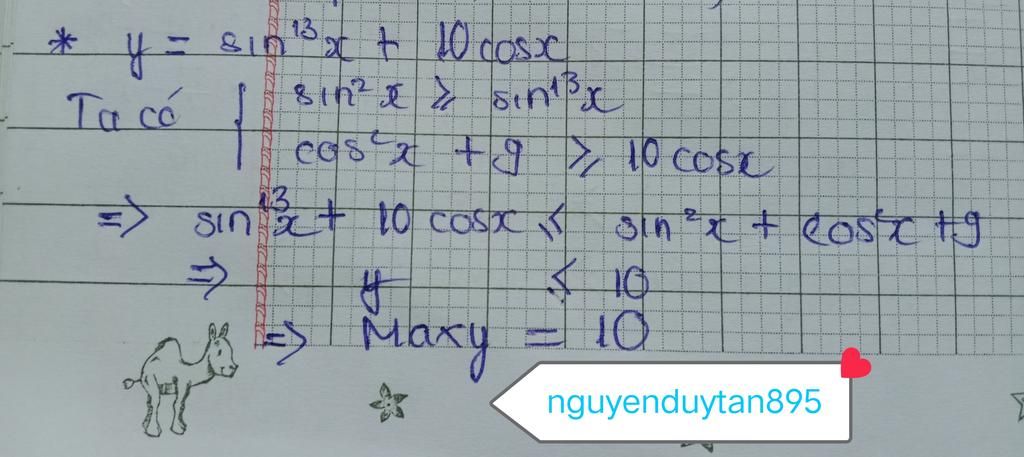 * y = sin¹³x + 10cosx
Ta có { sin²x ⩾ sin¹³x
cos²x + 9 ⩾ 10cosx
=> sin¹³x + 10cosx ⩽ sin²x + cos²x + 9
=> y ⩽ 10
=> Maxy = 10
nguyenduytan895